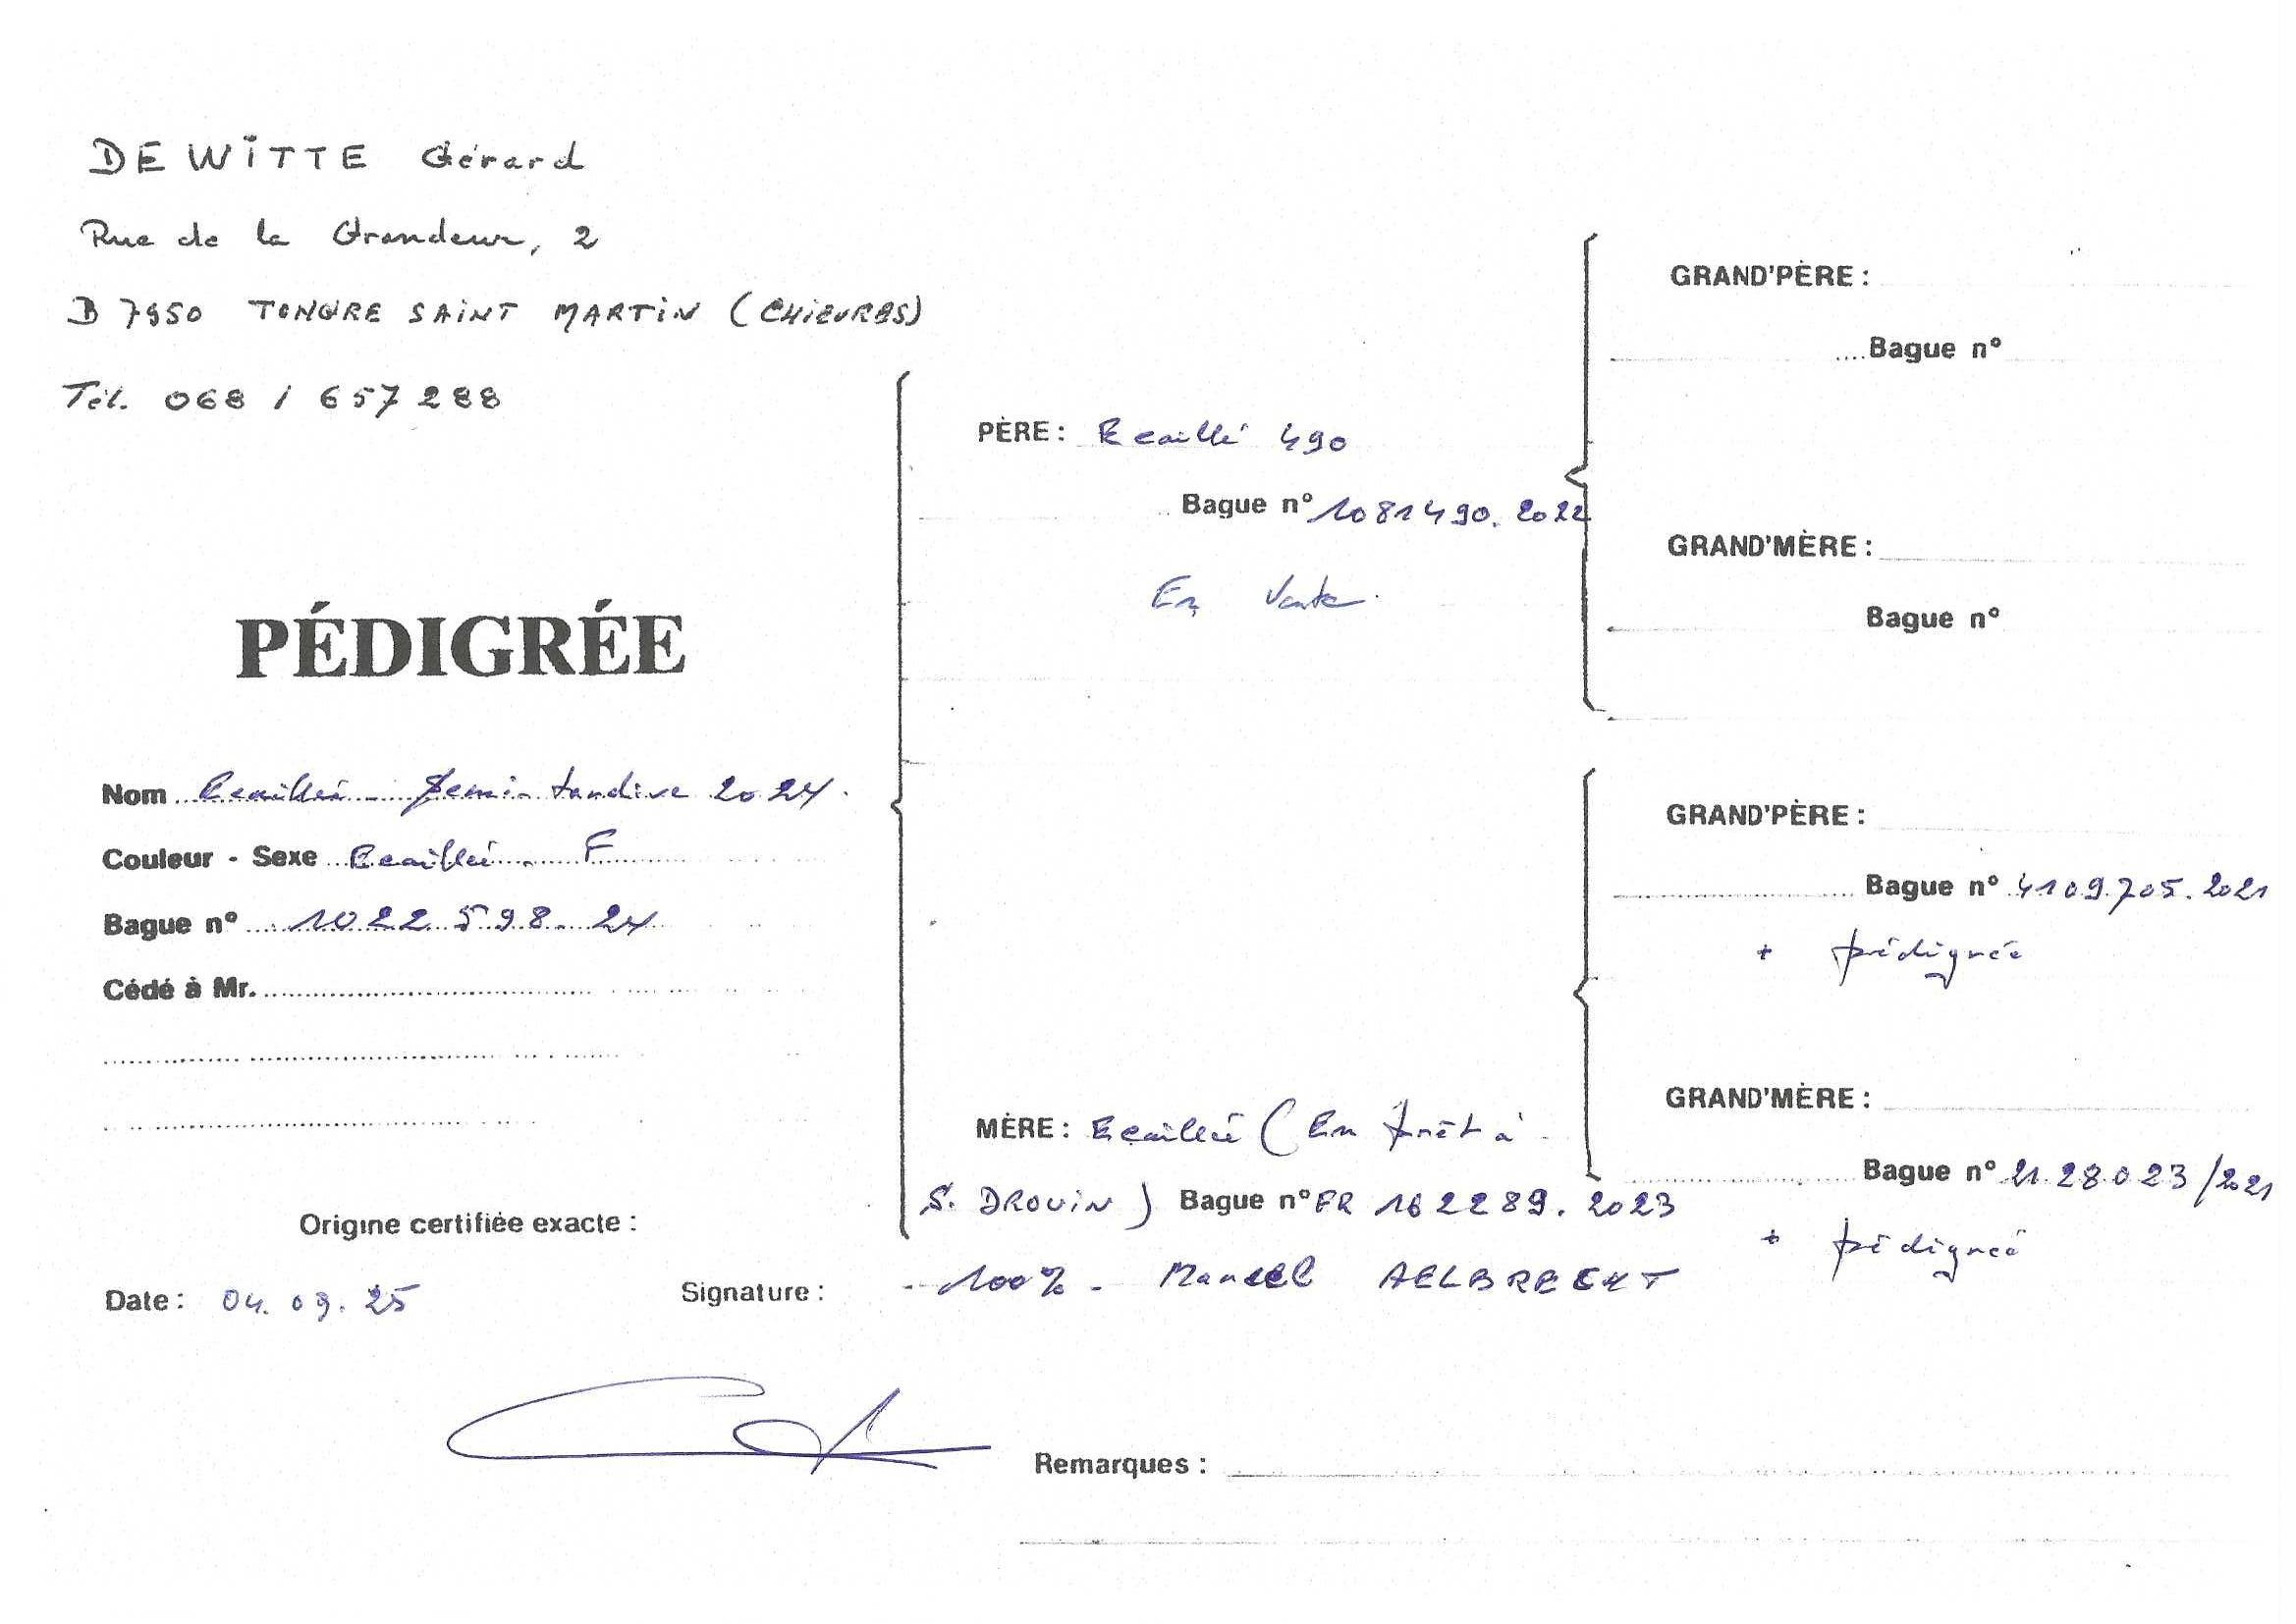 DE WITTE Gérard
Rue de la Grandeur, 2
B 7950 TONGRE SAINT MARTIN (CHIEVRES)
Tél. 068 / 657 288
PÉDIGRÉE
Nom Ecaillée - Semi-tardive 2024.
Couleur - Sexe Ecaillée - F
Bague n° 1022598-24
Cédé à Mr.
Origine certifiée exacte :
Date : 04.09.25
Signature :
PÈRE : Ecaillé 490
Bague n° 1081490.2022
En Vente.
MÈRE : Ecaillée (En prêt à
S. DROUIN) Bague n° FR 162289.2023
- 100% - Marcel AELBRECHT
GRAND'PÈRE :
Bague n°
GRAND'MÈRE :
Bague n°
GRAND'PÈRE :
Bague n° 4109.705.2021
+ pédigrée
GRAND'MÈRE :
Bague n° 2128023/2021
+ pédigrée
Remarques :